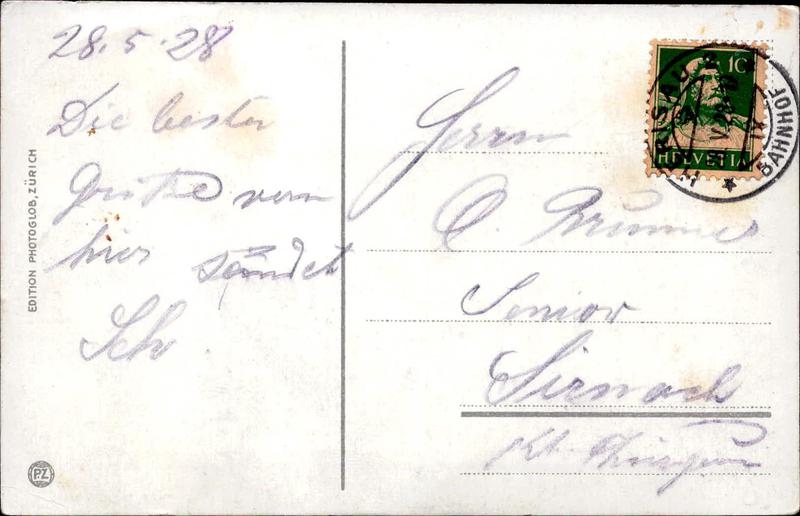 28.5.28
Die besten
Grüße von
hier sendet
Sch
Herrn
O. Brunner
Senior
Sirnach
Kt. Thurgau
10
HELVETIA
HERISAU
BAHNHOF
EDITION PHOTOGLOB, ZÜRICH
P.Z.